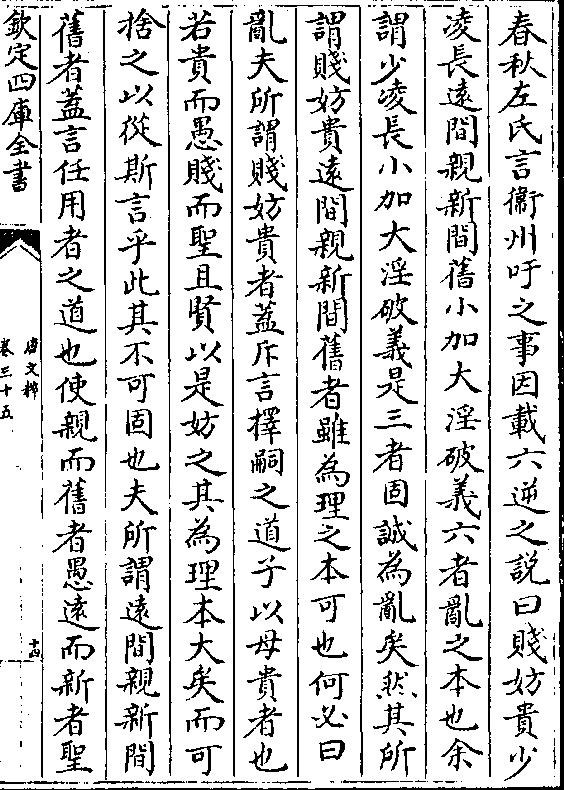 春秋左氏言衞州吁之事因載六逆之說曰賤妨貴少
凌長遠間親新間舊小加大淫破義六者亂之本也余
謂少凌長小加大淫破義是三者固誠為亂矣然其所
謂賤妨貴遠間親新間舊者雖為理之本可也何必曰
亂夫所謂賤妨貴者蓋斥言擇嗣之道子以母貴者也
若貴而愚賤而聖且賢以是妨之其為理本大矣而可
捨之以從斯言乎此其不可固也夫所謂遠間親新間
舊者蓋言任用者之道也使親而舊者愚遠而新者聖
欽定四庫全書
唐文粹
卷三十五
十四